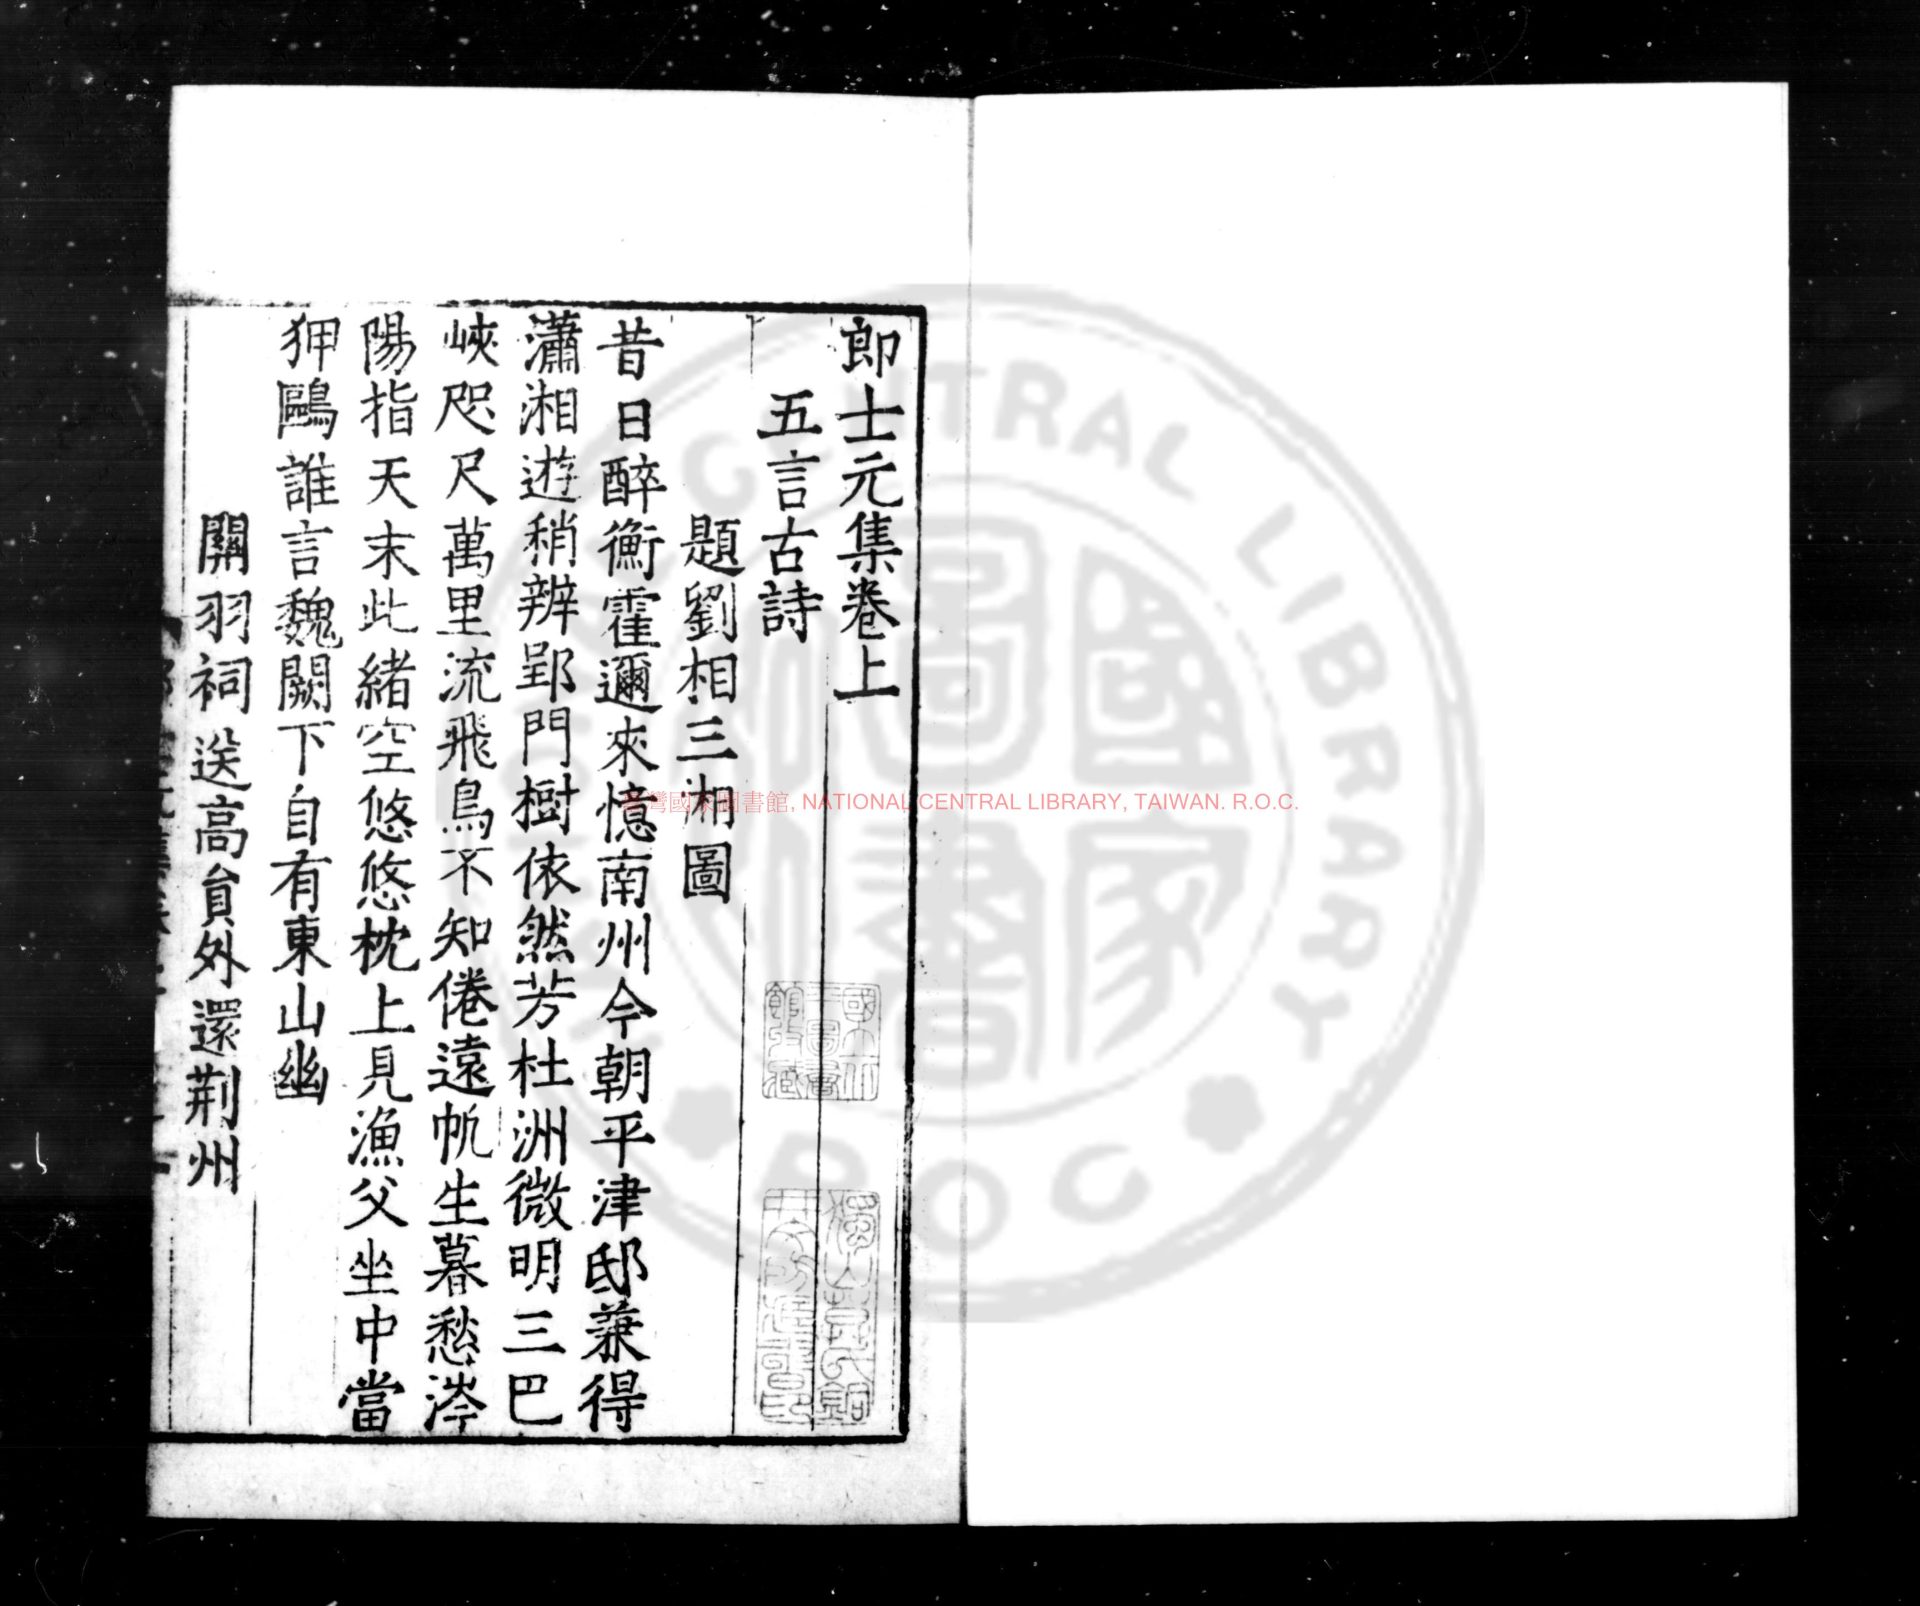 郎士元集卷上
五言古詩
題劉相三湘圖
昔日醉衡霍邇來憶南州今朝平津邸兼得
瀟湘遊稍辨郢門樹依然芳杜洲微明三巴
峽咫尺萬里流飛鳥不知倦遠帆生暮愁涔
陽指天末此緒空悠悠枕上見漁父坐中當
狎鷗誰言魏闕下自有東山幽
關羽祠送高員外還荆州
國立中
央圖書
館收藏
臺灣國家圖書館, NATIONAL CENTRAL LIBRARY, TAIWAN. R.O.C.
NATIONAL CENTRAL LIBRARY
ROC
國家
圖書